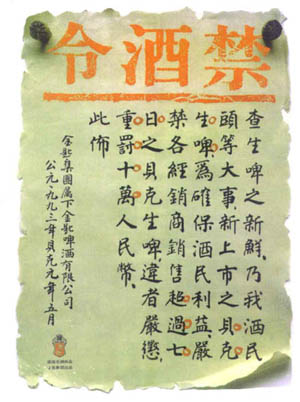 禁酒令
查生啤之新鮮,乃我酒民
頭等大事,新上市之貝克
生啤,爲確保酒民利益,嚴
禁各經銷商銷售超過七
日之貝克生啤,違者嚴懲,
重罰十萬人民幣,
此佈
金匙集團属下金匙啤酒有限公司
公元一九九三年貝克元年五月